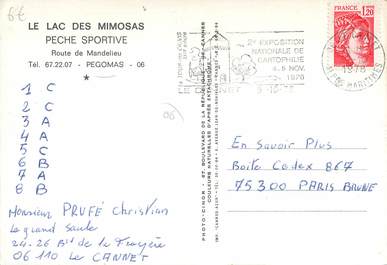 6€
LE LAC DES MIMOSAS
PECHE SPORTIVE
Route de Mandelieu
Tel. 67.22.07 - PEGOMAS - 06
*
1 C
2 C
3 A
4 A
5 C
6 B
7 A
8 B
Monsieur PRUFÉ Christian
Le grand Saule
24-26 Bd de la
06110 Le CANNET
06
2e EXPOSITION
NATIONALE DE
CARTOPHILIE
4-5 NOV.
1978
FRANCE
1,20
1978
ALPES MARITIMES
En Savoir Plus
Boite Codex 867
75300 PARIS BRUNE